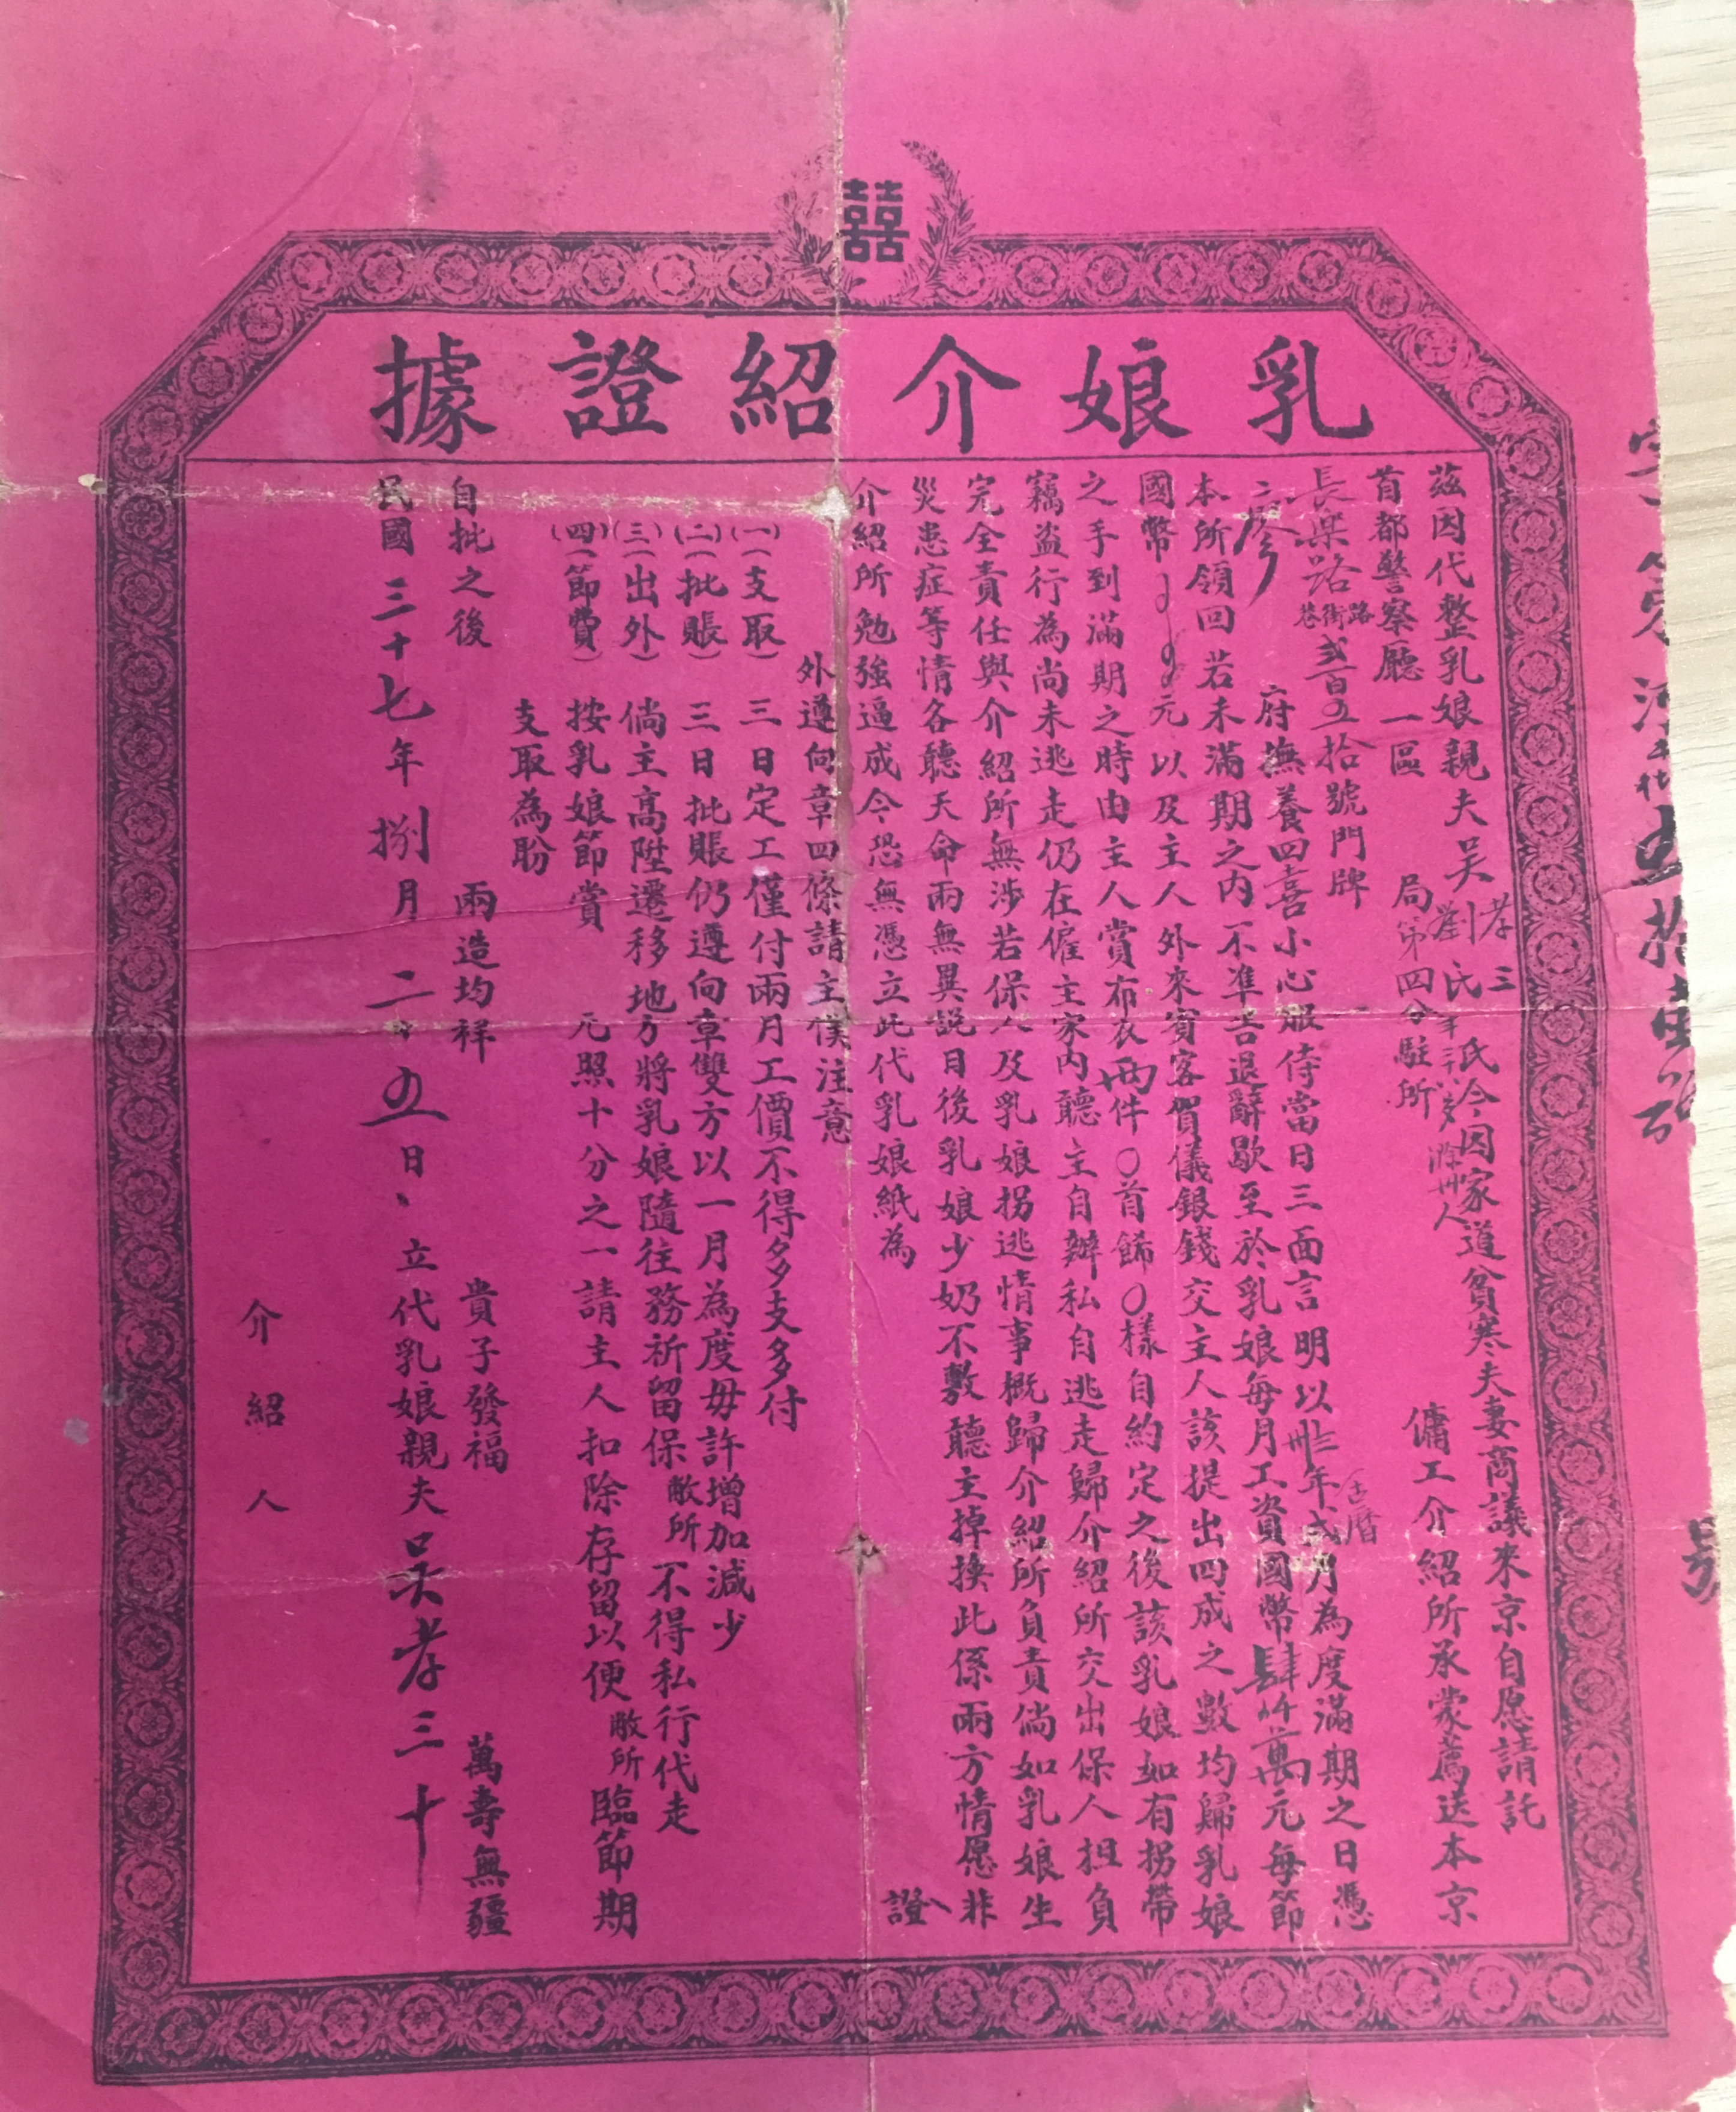 囍
乳娘介紹證據
茲因代整乳娘親夫吳孝三劉氏氏今因家道貧寒夫妻商議來京自愿請託
年二十八歲滁州人
首都警察廳一區局第四分駐所傭工介紹所承蒙薦送本京
長樂路路街巷貳百五拾號門牌
廖府撫養四喜小心服侍當日三面言明以卅年弍月為度滿期之日憑
古曆
本所領回若未滿期之內不準告退辭歇至於乳娘每月工資國幣肆仟萬元每節
國幣元以及主人外來賓客賀儀銀錢交主人該提出四成之數均歸乳娘
之手到滿期之時由主人賞布衣兩件〇首餙〇樣自約定之後該乳娘如有拐帶
竊盜行為尚未逃走仍在僱主家內聽主自辦私自逃走歸介紹所交出保人担負
完全責任與介紹所無涉若保人及乳娘拐逃情事概歸介紹所負責倘如乳娘生
災患症等情各聽天命兩無異説日後乳娘少奶不敷聽主掉換此係兩方情愿非
介紹所勉強逼成今恐無憑立此代乳娘紙為證
外遵向章四條請主僕注意
(一)(支取)三日定工僅付兩月工價不得多支多付
(二)(批賬)三日批賬仍遵向章雙方以一月為度毋許增加減少
(三)(出外)倘主高陞遷移地方將乳娘隨往務祈留保敝所不得私行代走
(四)(節費)按乳娘節賞元照十分之一請主人扣除存留以便敝所臨節期
支取為盼
自批之後兩造均祥貴子發福萬壽無疆
民國三十七年捌月二五日立代乳娘親夫吳孝三十
介紹人